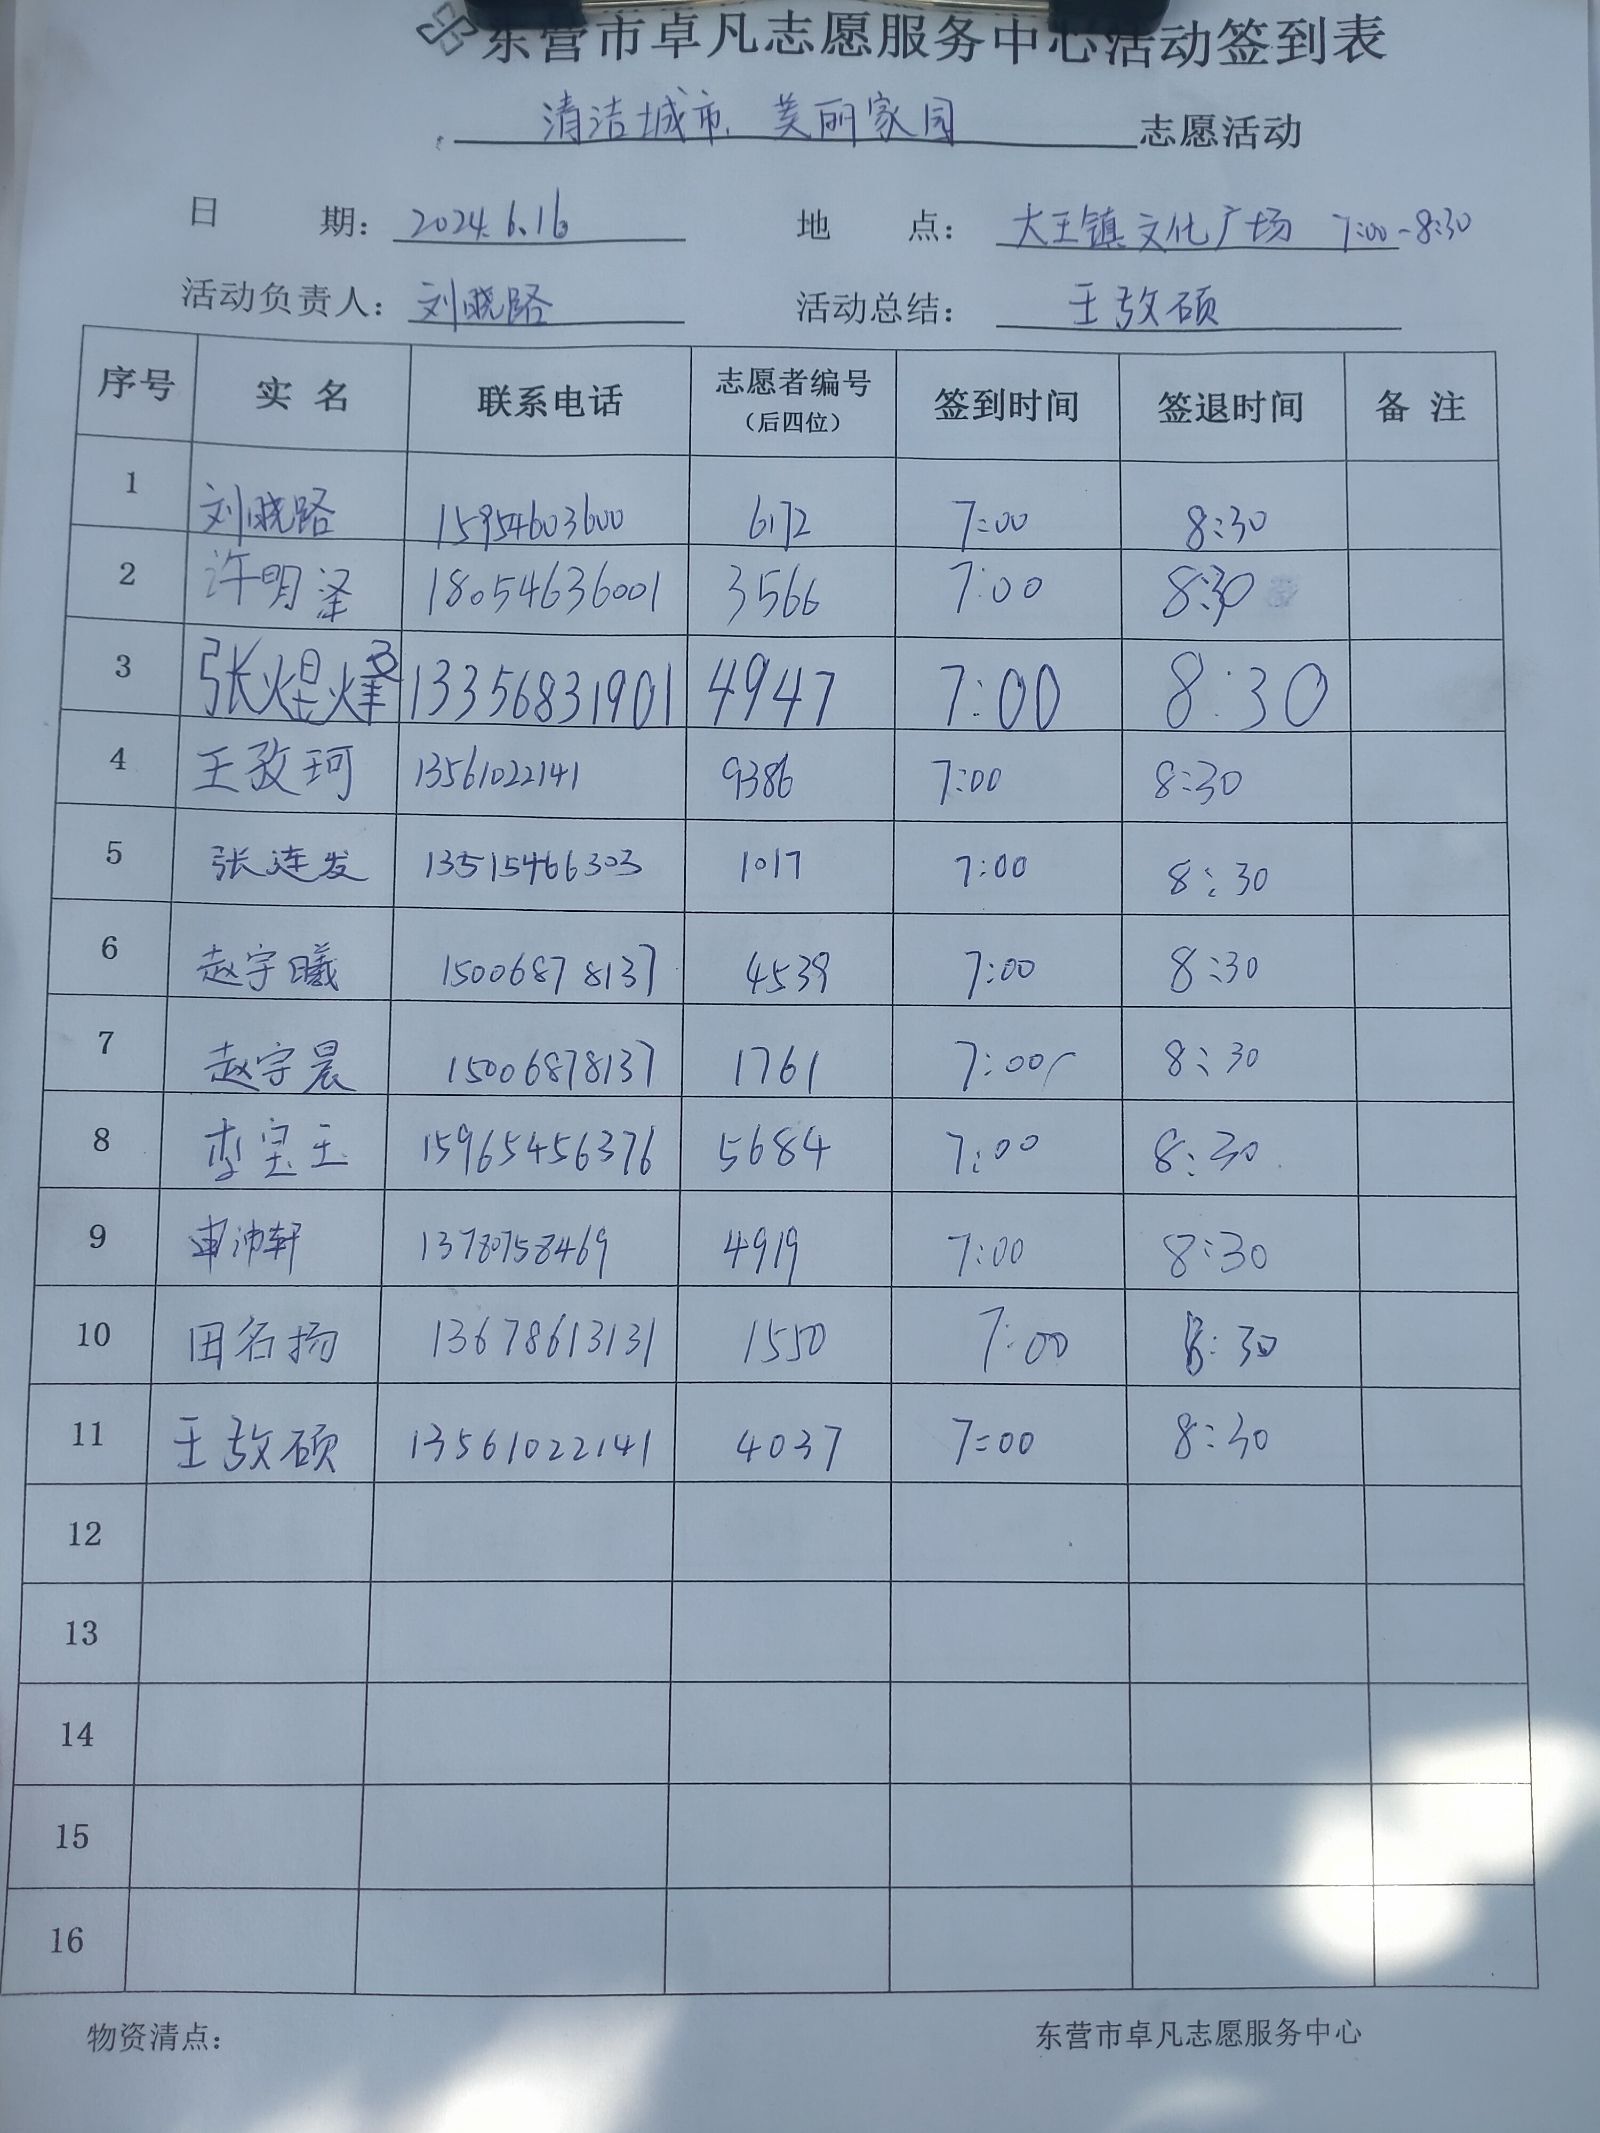 东营市卓凡志愿服务中心活动签到表
清洁城市 美丽家园 志愿活动
日 期： 2024.6.16 地 点： 大王镇文化广场 7:00-8:30
活动负责人： 刘晓路 活动总结： 王敄硕
序号 实 名 联系电话 志愿者编号（后四位） 签到时间 签退时间 备 注
1 刘晓路 15954603600 6172 7:00 8:30
2 许明泽 18054636001 3566 7:00 8:30
3 张焜烽 13356831901 4947 7:00 8:30
4 王孜珂 13561022141 9386 7:00 8:30
5 张连发 13515466303 1017 7:00 8:30
6 赵宇曦 15006878137 4539 7:00 8:30
7 赵宇晨 15006878137 1761 7:00 8:30
8 李宝玉 15965456376 5684 7:00 8:30
9 轩 13780758469 4919 7:00 8:30
10 田名扬 13678613131 1550 7:00 8:30
11 王敄硕 13561022141 4037 7:00 8:30
12
13
14
15
16
物资清点： 东营市卓凡志愿服务中心